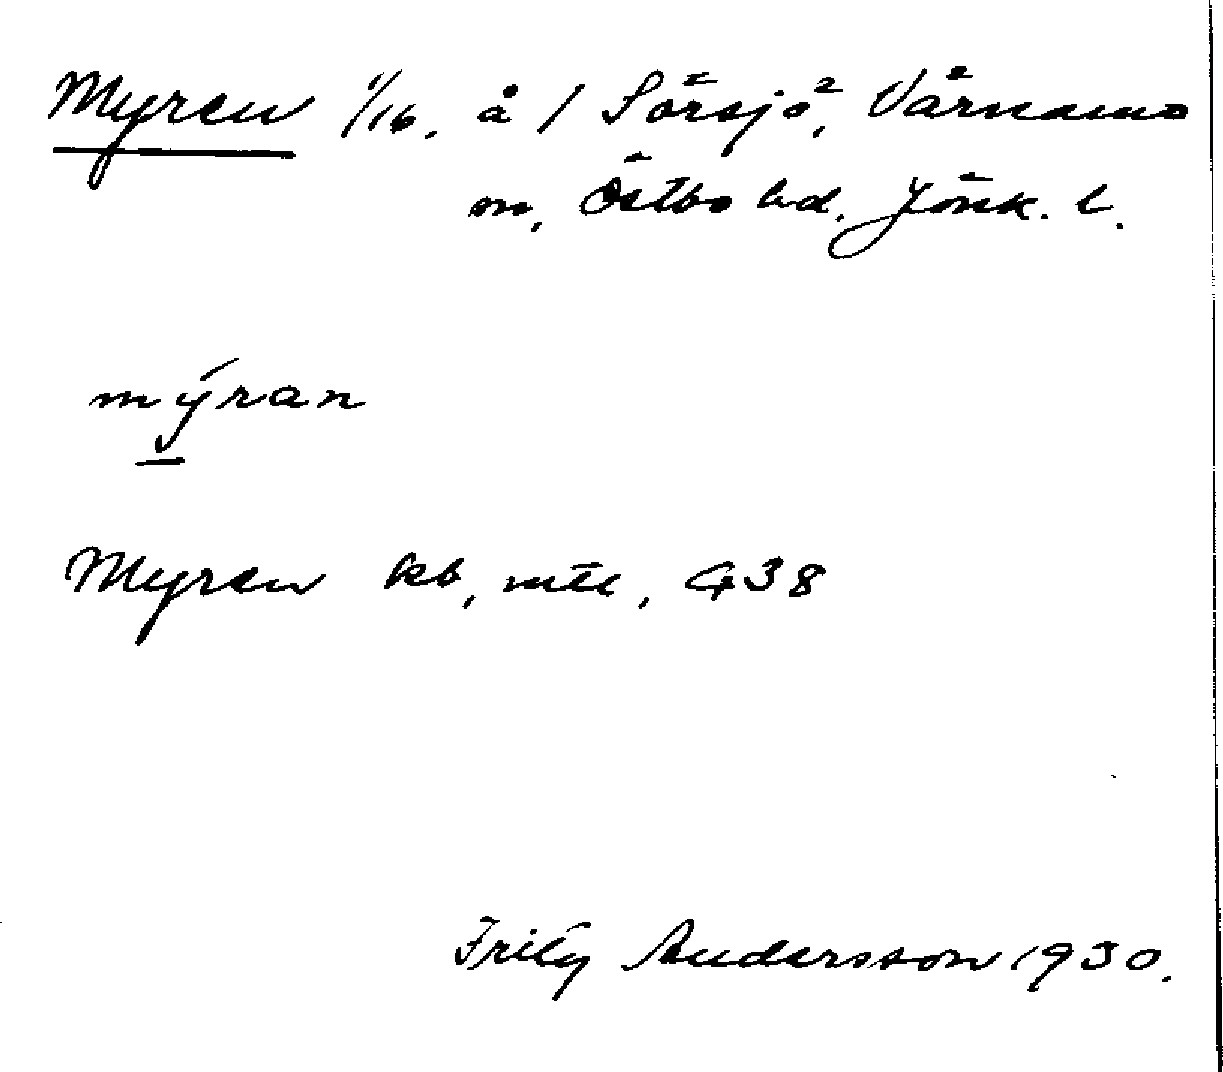 Myren 1/16. å / Sörsjö, Värnamo
sn, Östbo hd. Jönk. l.
mýran
Myren kb, mtl, G38
Fritz Andersson 1930.